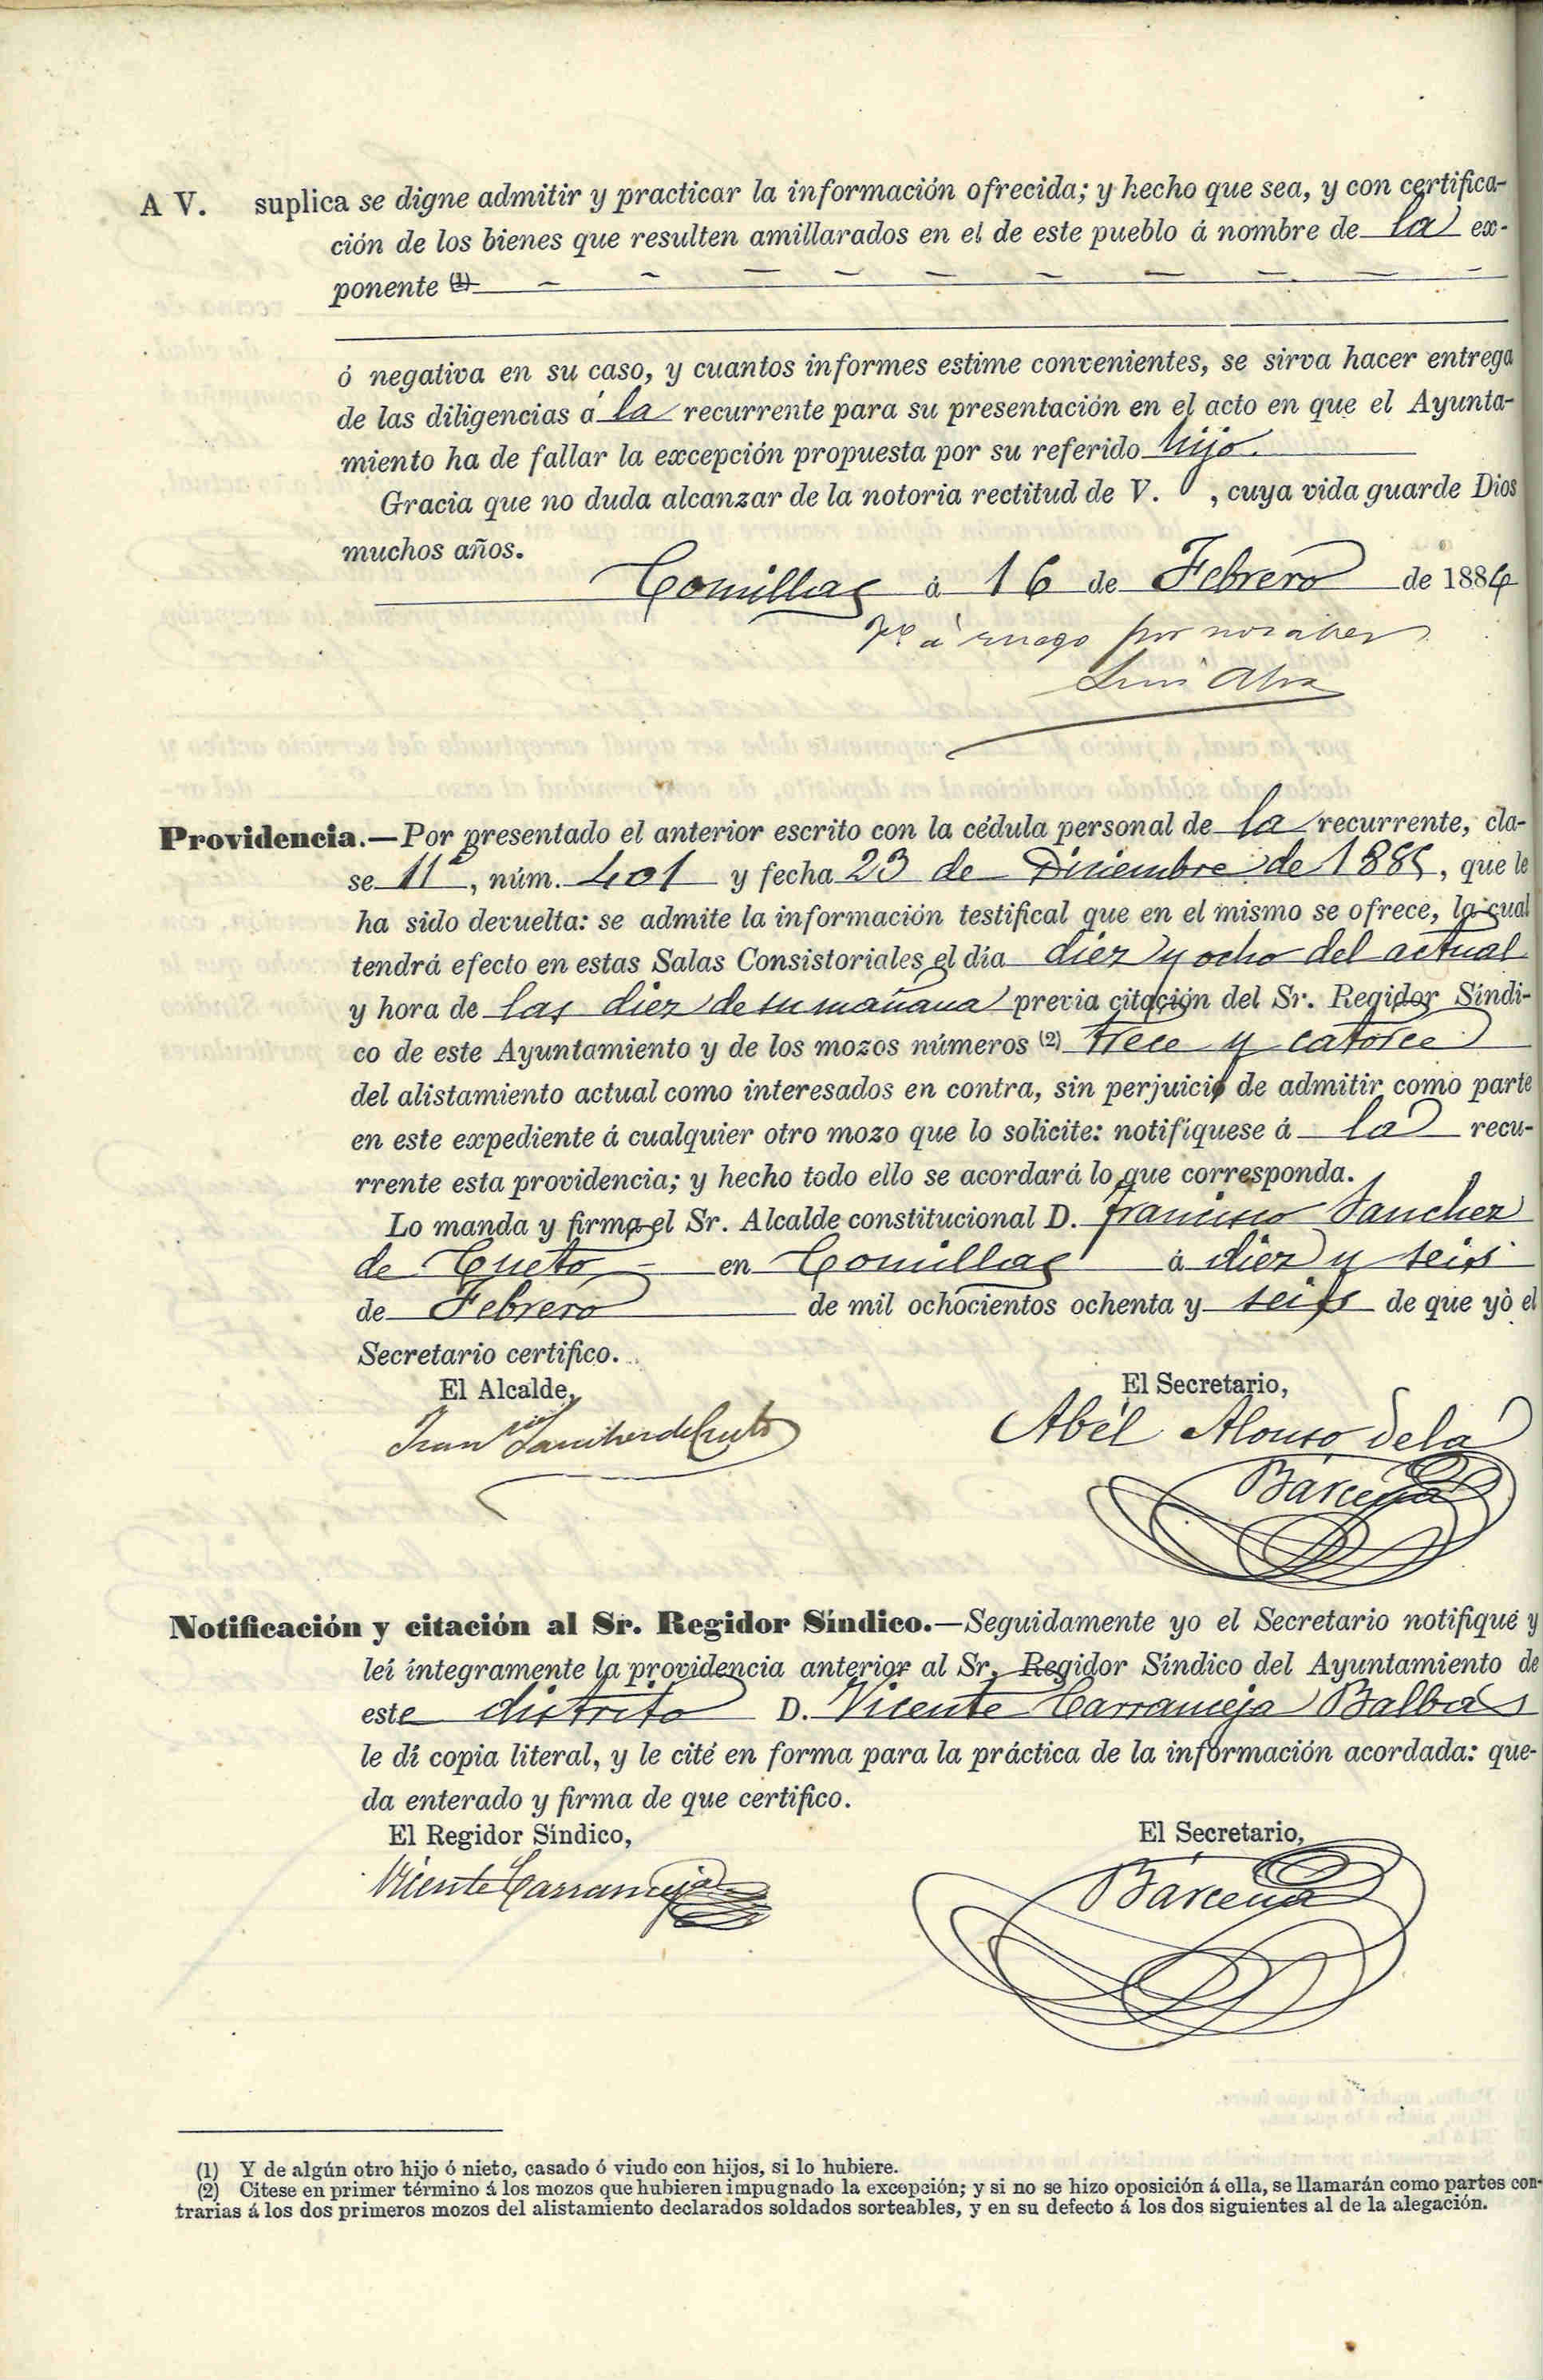 A V. suplica se digne admitir y practicar la información ofrecida; y hecho que sea, y con certifica-
ción de los bienes que resulten amillarados en el de este pueblo á nombre de la ex-
ponente (1)
ó negativa en su caso, y cuantos informes estime convenientes, se sirva hacer entrega
de las diligencias á la recurrente para su presentación en el acto en que el Ayunta-
miento ha de fallar la excepción propuesta por su referido hijo.
Gracia que no duda alcanzar de la notoria rectitud de V. , cuya vida guarde Dios
muchos años.
Comillas á 16 de Febrero de 188
á ruego por no saber
Luis
Providencia.—Por presentado el anterior escrito con la cédula personal de la recurrente, cla-
se 11ª, núm. 401 y fecha 23 de Diciembre de 1885, que le
ha sido devuelta: se admite la información testifical que en el mismo se ofrece, la cual
tendrá efecto en estas Salas Consistoriales el día diez y ocho del actual
y hora de las diez de su mañana previa citación del Sr. Regidor Síndi-
co de este Ayuntamiento y de los mozos números (2) trece y catorce
del alistamiento actual como interesados en contra, sin perjuicio de admitir como parte
en este expediente á cualquier otro mozo que lo solicite: notifíquese á la recu-
rrente esta providencia; y hecho todo ello se acordará lo que corresponda.
Lo manda y firma el Sr. Alcalde constitucional D. Francisco Sanchez
de Cueto en Comillas á diez y seis
de Febrero de mil ochocientos ochenta y seis de que yo el
Secretario certifico.
El Alcalde, El Secretario,
Franco Sanchez de Cueto Abél Alonso de la
Bárcena
Notificación y citación al Sr. Regidor Síndico.—Seguidamente yo el Secretario notifiqué y
leí íntegramente la providencia anterior al Sr. Regidor Síndico del Ayuntamiento de
este distrito D. Vicente Carranceja Balbás
le dí copia literal, y le cité en forma para la práctica de la información acordada: que-
da enterado y firma de que certifico.
El Regidor Síndico, El Secretario,
Vicente Carranceja Bárcena
(1) Y de algún otro hijo ó nieto, casado ó viudo con hijos, si lo hubiere.
(2) Cítese en primer término á los mozos que hubieren impugnado la excepción; y si no se hizo oposición á ella, se llamarán como partes con-
trarias á los dos primeros mozos del alistamiento declarados soldados sorteables, y en su defecto á los dos siguientes al de la alegación.